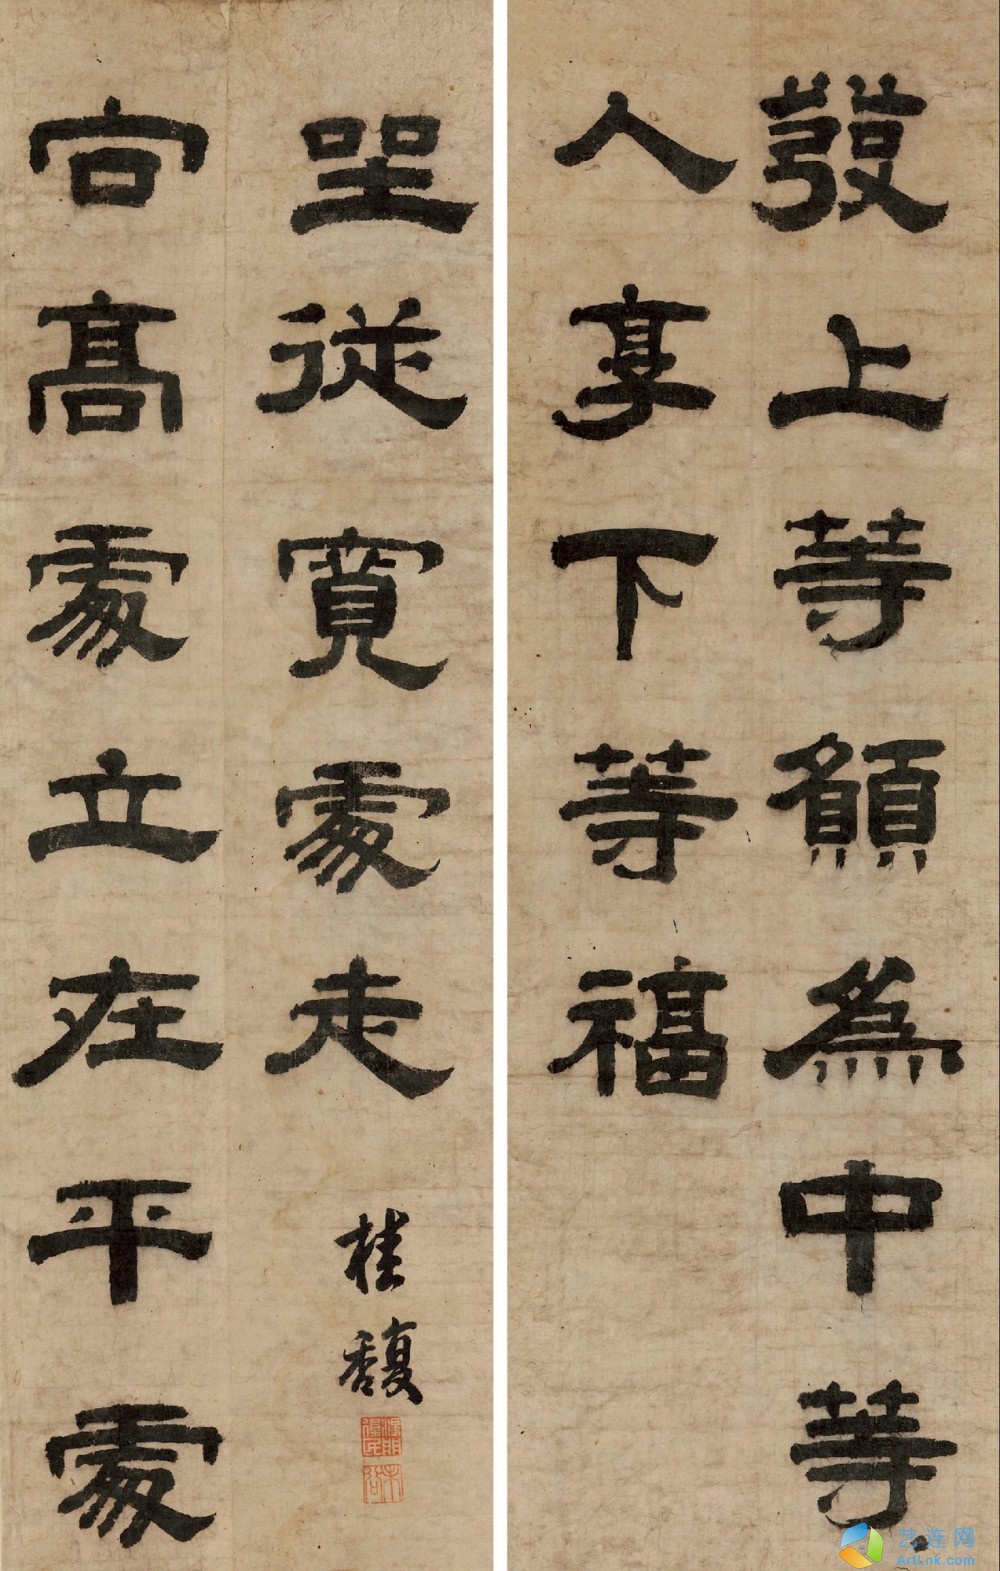 發上等願爲中等
人享下等福
向高處立在平處
坐從寬處走
桂馥
未谷
艺连网
ArtLnk.com